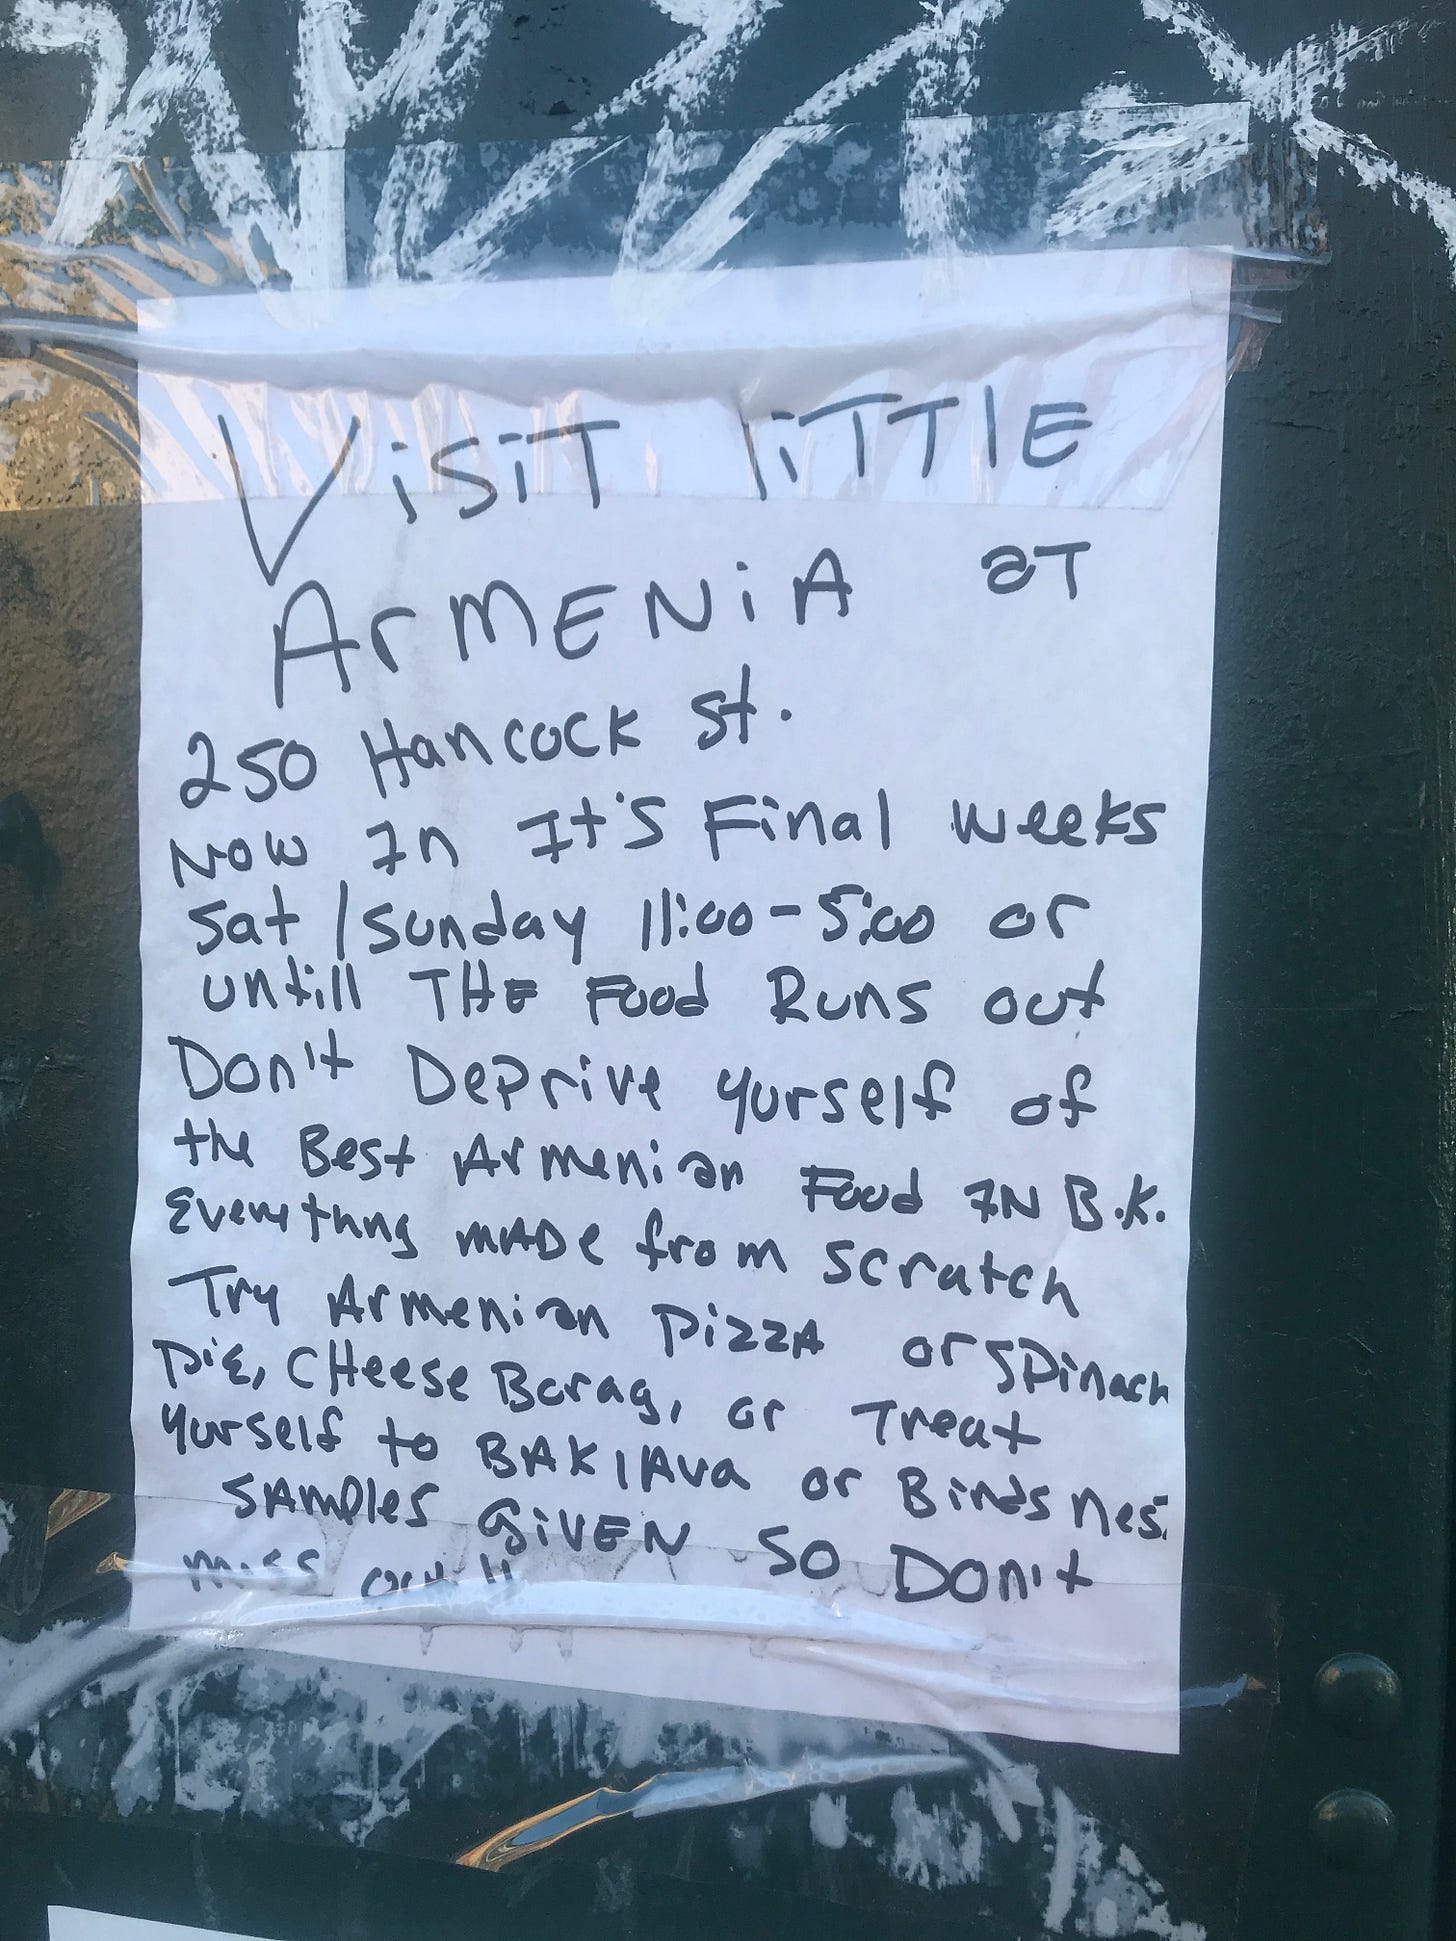 VisiT liTTlE
ArmENiA aT
250 Hancock st.
Now In It's Final weeks
Sat/Sunday 11:00-5:00 or
untill THE Food Runs out
Don't Deprive yurself of
the Best Armenian Food IN B.K.
Everythng mADe from scratch
Try Armenian PizzA or spinach
Pie, CHeese Borag, or Treat
yurself to BAKlAva or Birds nes
SAMples GiVEN SO Don't
miss out!!